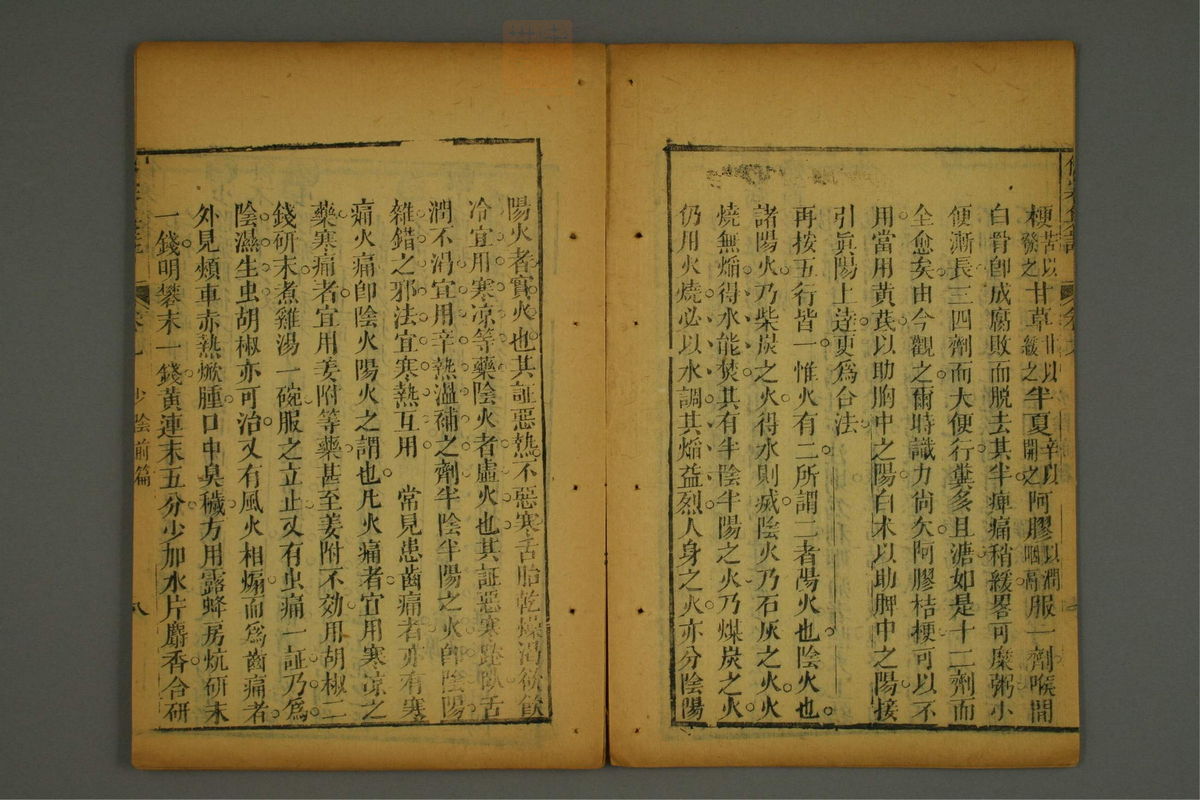 梗苦以發之甘草甘以緩之半夏辛以開之阿膠以潤咽膈服一劑喉間
白骨卽成腐敗而脱去其半痺痛稍緩畧可糜粥小
便漸長三四劑而大便行糞多且溏如是十二劑而
全愈矣由今觀之爾時識力尙欠阿膠桔梗可以不
用當用黃茋以助胸中之陽白术以助脾中之陽接
引眞陽上達更爲合法
再按五行皆一惟火有二所謂二者陽火也陰火也
諸陽火乃柴炭之火得水則滅陰火乃石灰之火火
燒無焰得水能焚其有半陰半陽之火乃煤炭之火
仍用火燒必以水調其焰益烈人身之火亦分陰陽
陽火者實火也其証惡熱不惡寒舌胎乾燥渴欲飲
冷宜用寒凉等藥陰火者虛火也其証惡寒踡臥舌
潤不渴宜用辛熱溫補之劑半陰半陽之火卽陰陽
雜錯之邪法宜寒熱互用 常見患齒痛者亦有寒
痛火痛卽陰火陽火之謂也凡火痛者宜用寒凉之
藥寒痛者宜用姜附等藥甚至姜附不効用胡椒二
錢研末煮雞湯一碗服之立止又有虫痛一証乃爲
陰濕生虫胡椒亦可治又有風火相煽而爲齒痛者
外見頰車赤熱焮腫口中臭穢方用露蜂房炕研末
一錢明礬末一錢黃連末五分少加水片麝香合研
少陰前篇
八